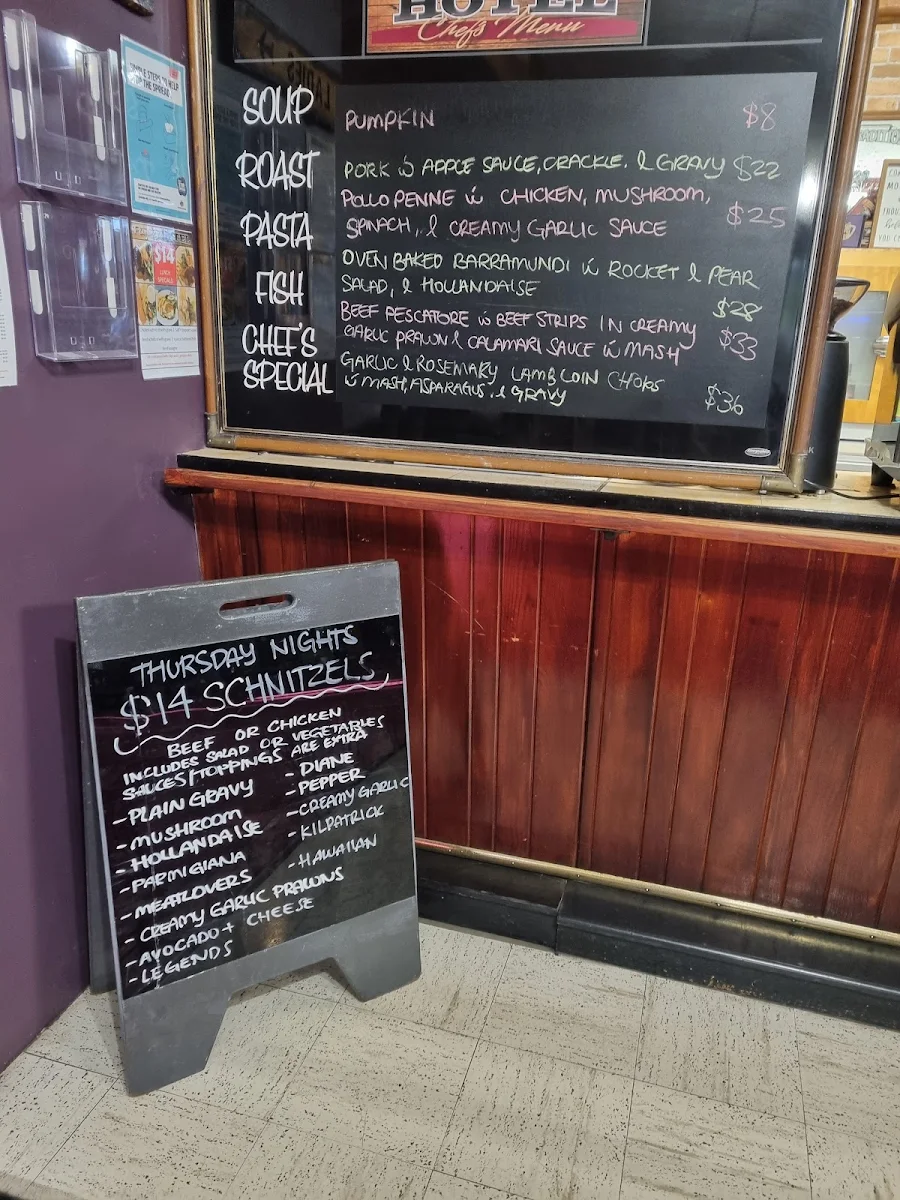 HOTEL
Chef's Menu
SOUP
PUMPKIN
$8
ROAST
PORK W APPLE SAUCE, CRACKLE, & GRAVY $22
PASTA
POLLO PENNE W CHICKEN, MUSHROOM,
SPINACH, & CREAMY GARLIC SAUCE
$25
FISH
OVEN BAKED BARRAMUNDI W ROCKET & PEAR
SALAD, & HOLLANDAISE
$28
CHEF'S
SPECIAL
BEEF PESCATORE W BEEF STRIPS IN CREAMY
GARLIC PRAWN & CALAMARI SAUCE W MASH
$33
GARLIC & ROSEMARY LAMB LOIN CHOPS
W MASH, ASPARAGUS, & GRAVY
$36
$14
LUNCH
SPECIALS
THURSDAY NIGHTS
$14 SCHNITZELS
BEEF OR CHICKEN
INCLUDES SALAD OR VEGETABLES
SAUCES/TOPPINGS ARE EXTRA
- PLAIN GRAVY
- MUSHROOM
- HOLLANDAISE
- PARMIGIANA
- MEATLOVERS
- CREAMY GARLIC PRAWNS
- AVOCADO + CHEESE
- LEGENDS
- DIANE
- PEPPER
- CREAMY GARLIC
- KILPATRICK
- HAWAIIAN